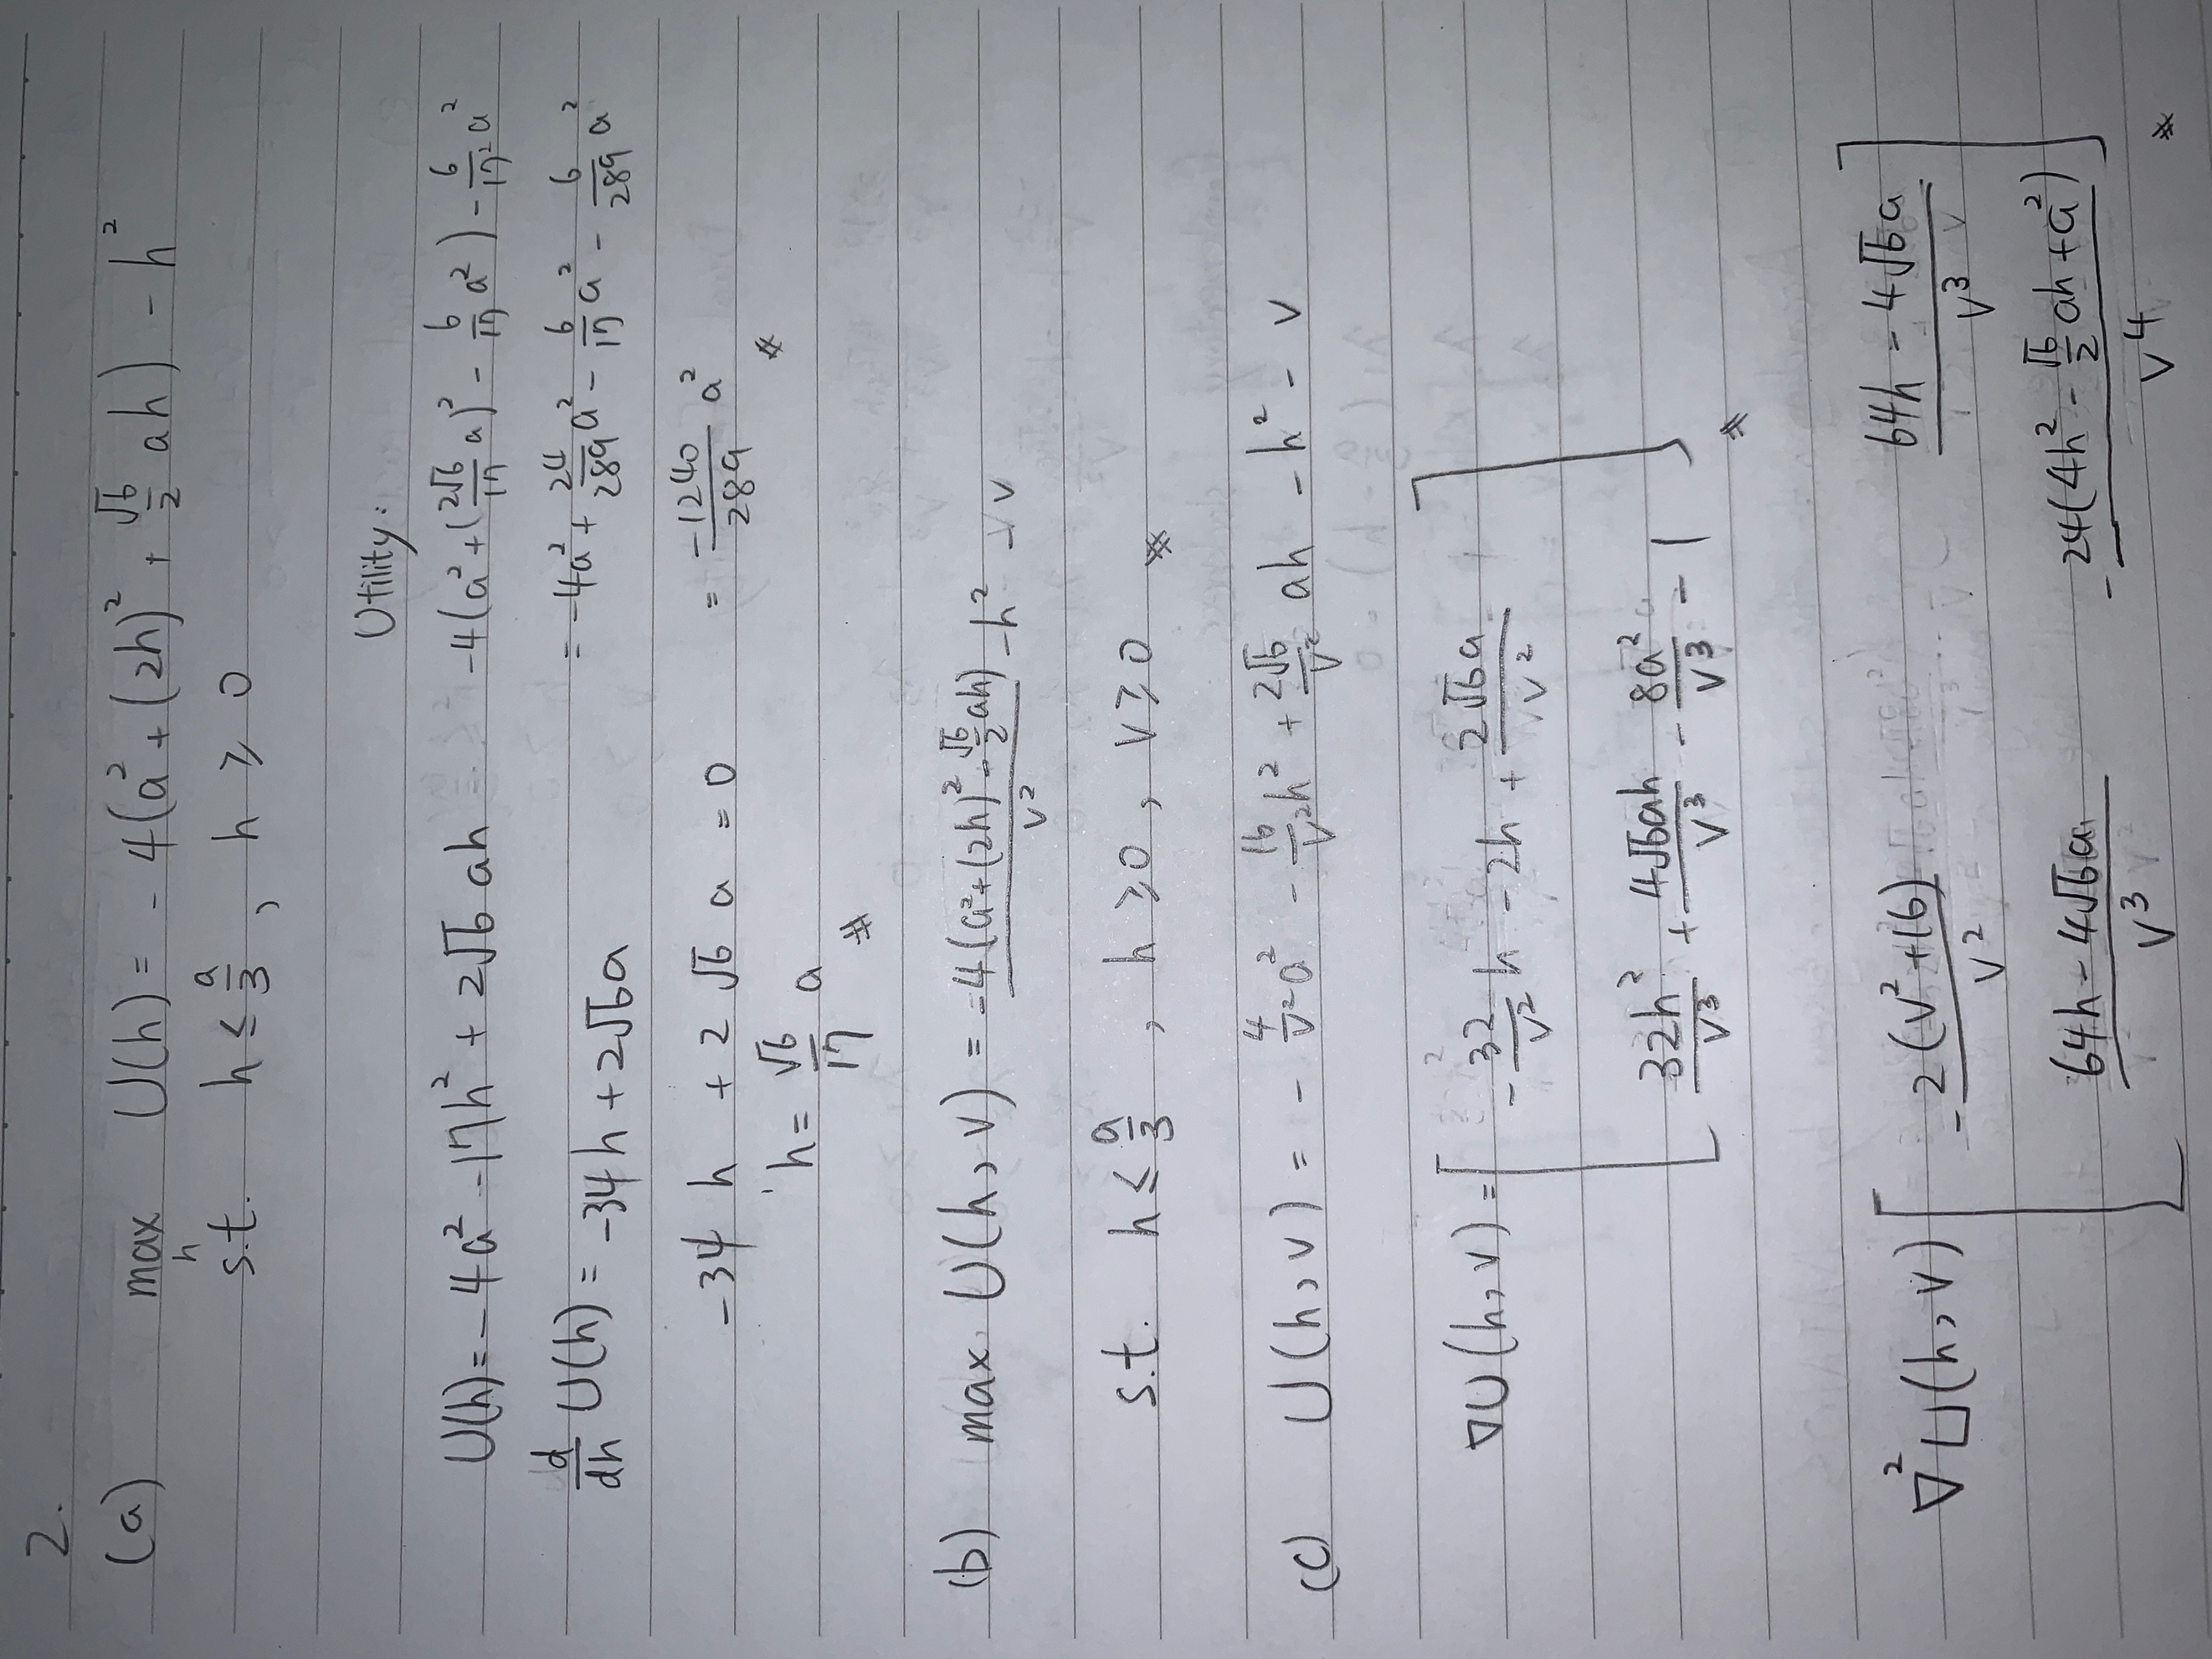 2.
(a) max_h U(h) = -4(a² + (2h)² + √6/2 ah) - h²
s.t. h ≤ a/3 , h ≥ 0
Utility:
U(h) = -4a² - 17h² + 2√6 ah
-4(a² + (2√6/17 a)² - 6/17 a²) - 6/17² a²
d/dh U(h) = -34h + 2√6a
= -4a² + 24/289 a² - 6/17 a² - 6/289 a²
-34 h + 2√6 a = 0
= -1240/289 a² ※
h = √6/17 a ※
(b) max U(h,v) = -4(a²+(2h)² - √6/2 ah)/v² - h² - v
s.t. h ≤ a/3 , h ≥ 0 , v ≥ 0 ※
(c) U(h,v) = - 4/v² a² - 16/v² h² + 2√6/v² ah - h² - v
∇U(h,v) = [ - 32/v² h - 2h + 2√6a/v²
32h²/v³ + 4√6ah/v³ - 8a²/v³ - 1 ] ※
∇²U(h,v) [ - 2(v²+16)/v² 64h - 4√6a/v³
64h - 4√6a/v³ - 24(4h² - √6/2 ah + a²)/v⁴ ] ※